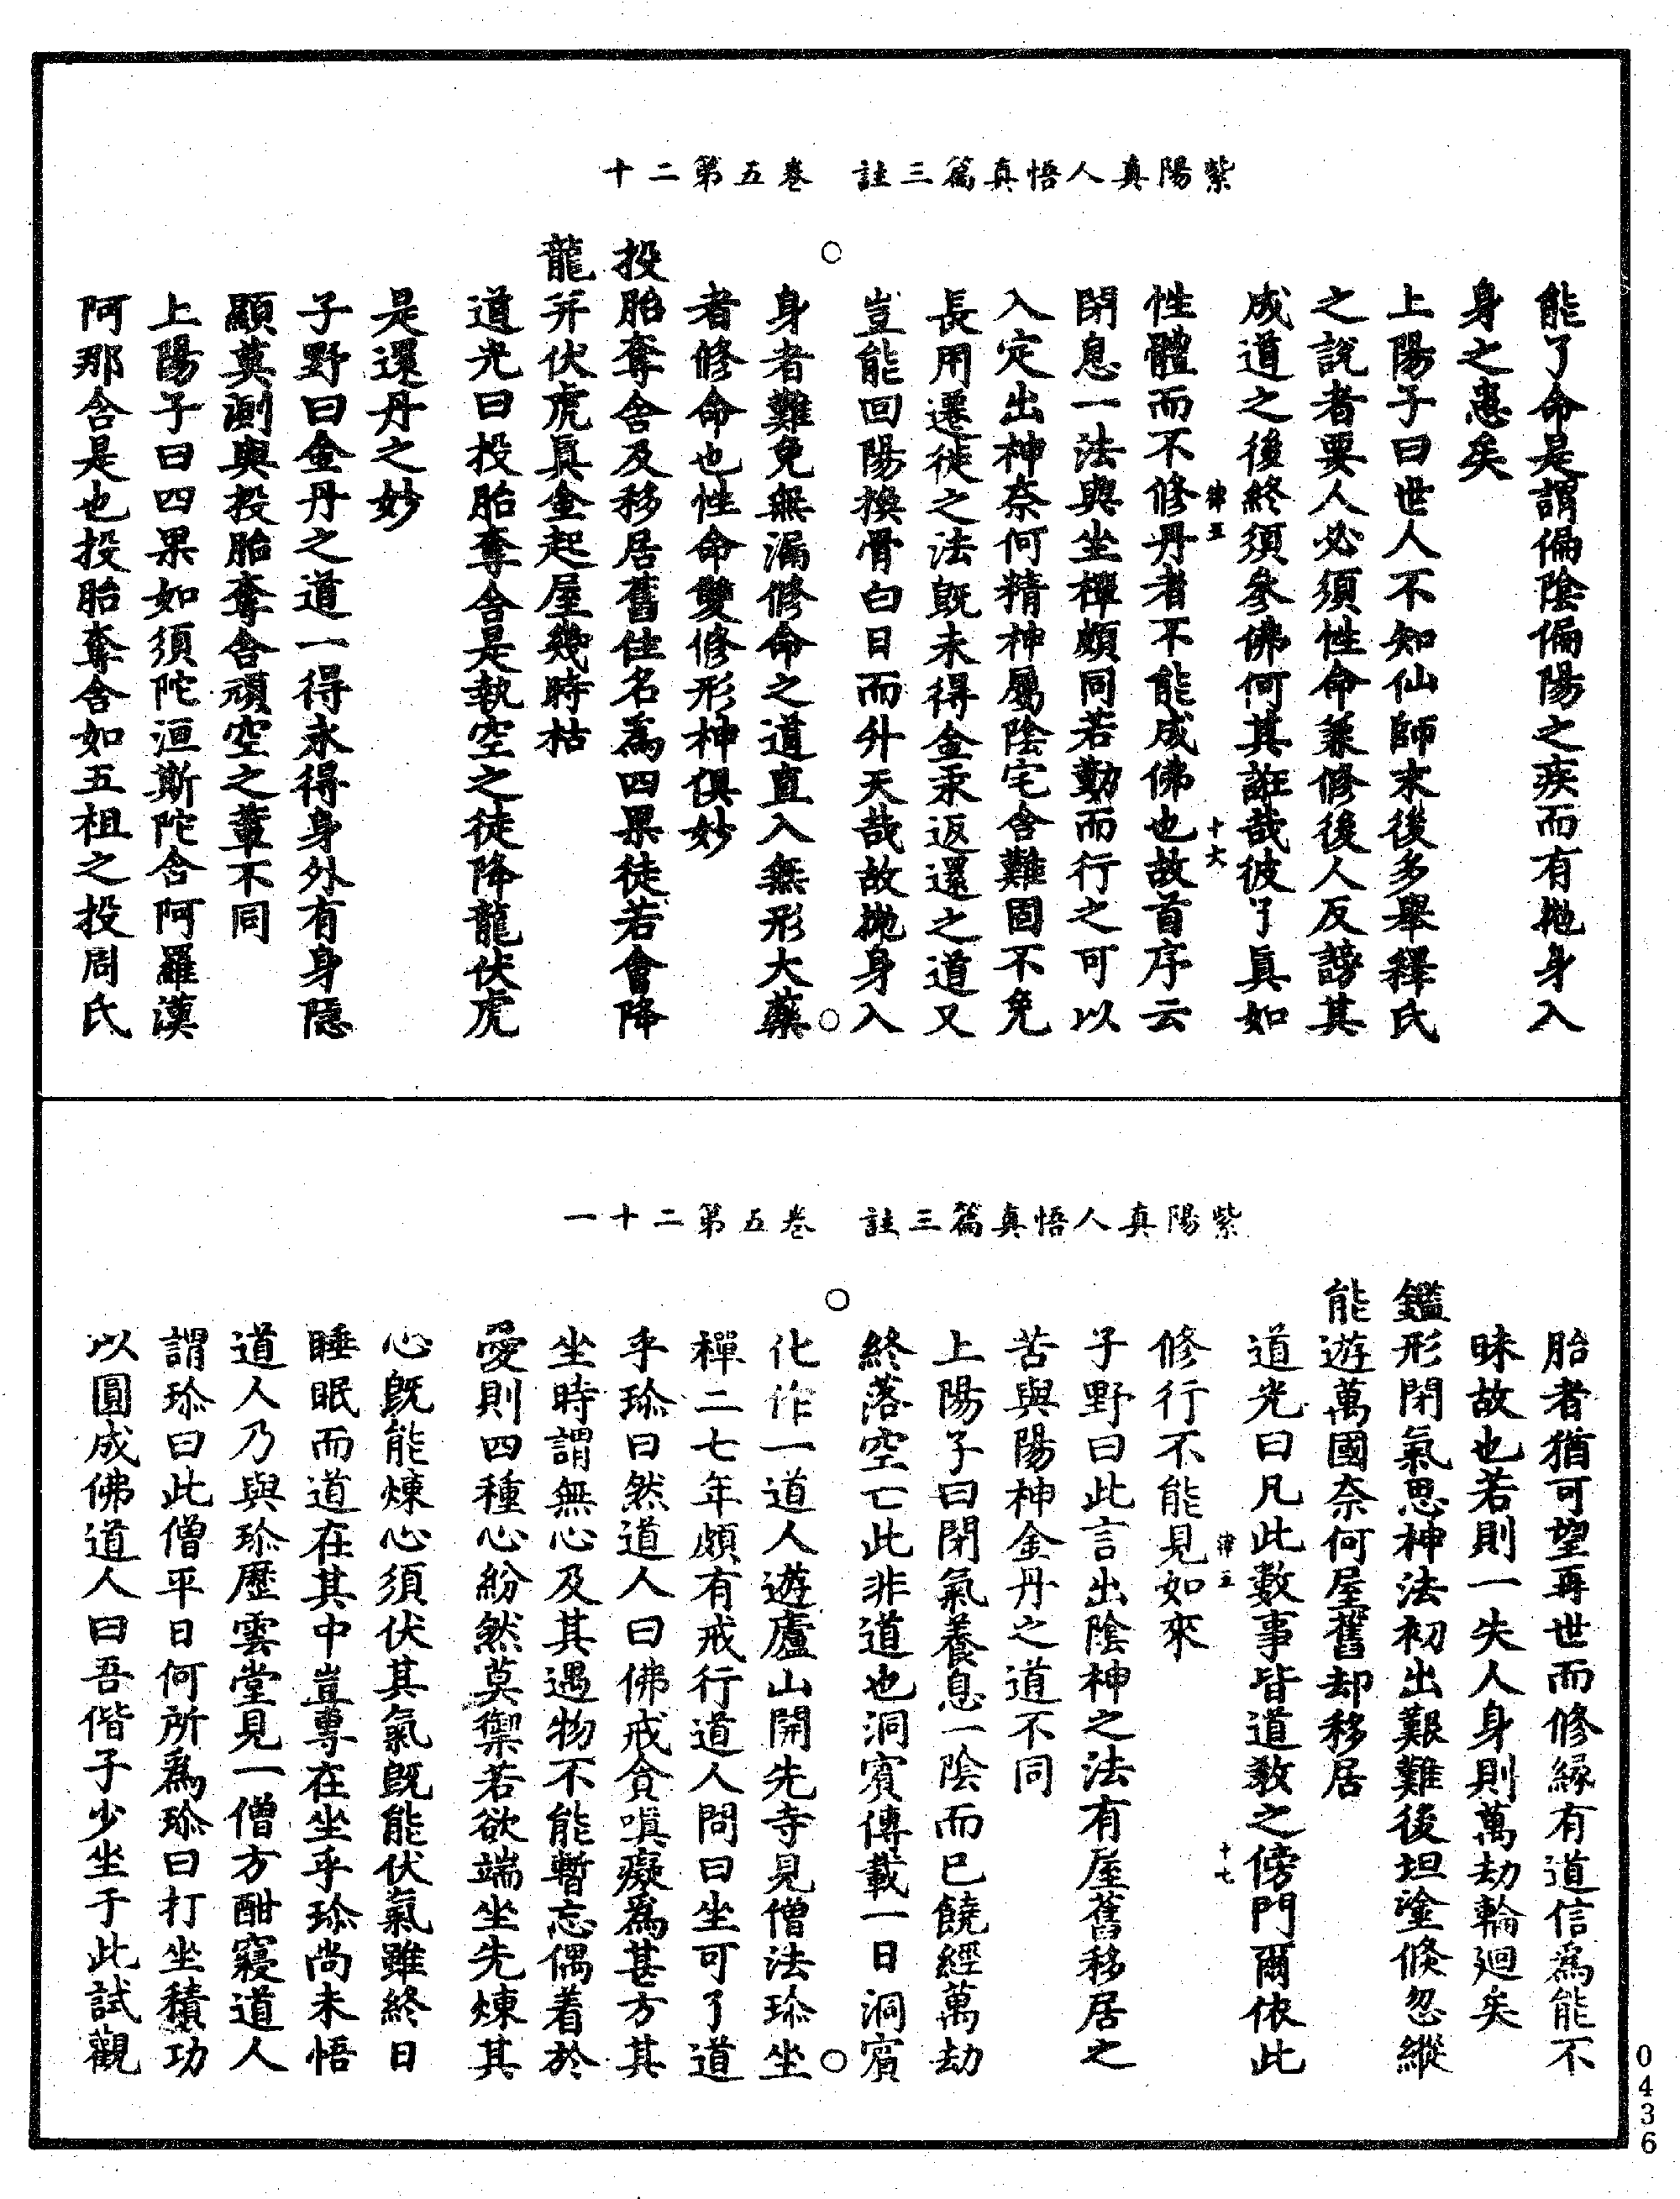 紫陽真人悟真篇三註　卷五第二十
能了命是謂偏陰偏陽之疾而有拋身入
身之患矣
上陽子曰世人不知仙師末後多舉釋氏
之說者要人必須性命兼修後人反謗其
成道之後終須參佛何其誑哉彼了真如
律五　十六
性體而不修丹者不能成佛也故首序云
閉息一法與坐禪頗同若勤而行之可以
入定出神奈何精神屬陰宅舍難固不免
長用遷徙之法既未得金汞返還之道又
豈能回陽換骨白日而升天哉故拋身入
身者難免無漏修命之道直入無形大藥
者修命也性命雙修形神俱妙
投胎奪舍及移居舊住名為四果徒若會降
龍并伏虎真金起屋幾時枯
道光曰投胎奪舍是執空之徒降龍伏虎
是還丹之妙
子野曰金丹之道一得永得身外有身隱
顯莫測與投胎奪舍頑空之輩不同
上陽子曰四果如須陀洹斯陀含阿羅漢
阿那含是也投胎奪舍如五祖之投周氏
紫陽真人悟真篇三註　卷五第二十一
胎者猶可望再世而修緣有道信為能不
昧故也若則一失人身則萬劫輪廻矣
鑑形閉氣思神法初出艱難後坦塗倏忽縱
能遊萬國奈何屋舊却移居
道光曰凡此數事皆道教之傍門爾依此
律五　十七
修行不能見如來
子野曰此言出陰神之法有屋舊移居之
苦與陽神金丹之道不同
上陽子曰閉氣養息一陰而已饒經萬劫
終落空亡此非道也洞賓傳載一日洞賓
化作一道人遊廬山開先寺見僧法珍坐
禪二七年頗有戒行道人問曰坐可了道
乎珍曰然道人曰佛戒貪嗔癡為甚方其
坐時謂無心及其遇物不能暫忘偶着於
愛則四種心紛然莫禦若欲端坐先煉其
心既能煉心須伏其氣既能伏氣雖終日
睡眠而道在其中豈專在坐乎珍尚未悟
道人乃與珍歷雲堂見一僧方酣寢道人
謂珍曰此僧平日何所為珍曰打坐積功
以圓成佛道人曰吾偕子少坐于此試觀
0436